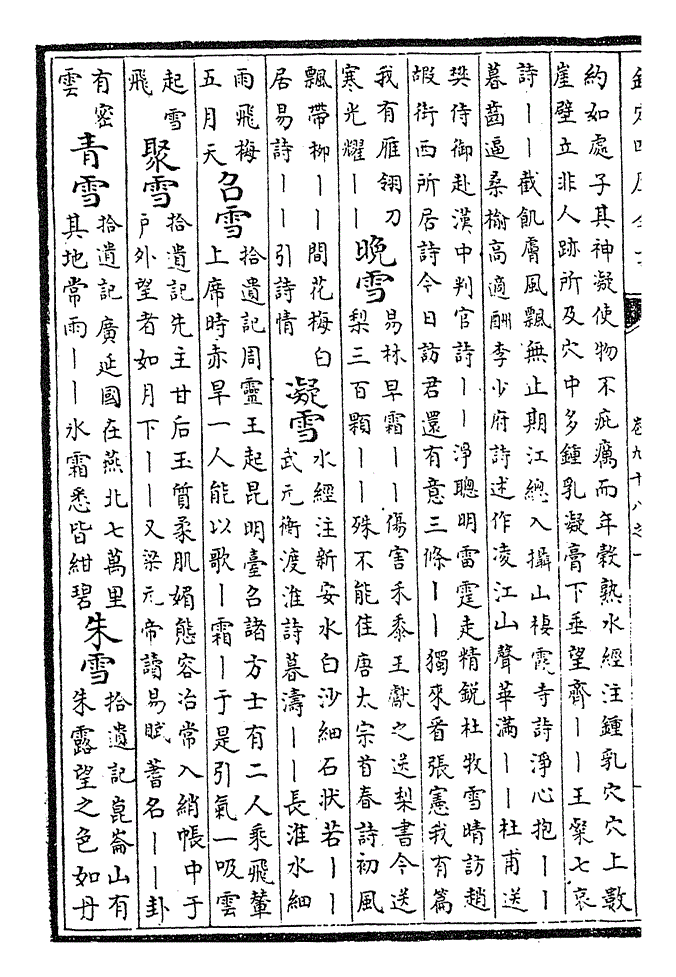 欽定四庫全書
卷九十八之一
約如處子其神凝使物不疵癘而年穀熟水經注鍾乳穴穴上數
崖壁立非人跡所及穴中多鍾乳凝膏下垂望齊丨丨王粲七哀
詩丨丨截飢膚風飄無止期江總入攝山棲霞寺詩淨心抱丨丨
暮齒逼桑榆高適酬李少府詩述作凌江山聲華滿丨丨杜甫送
樊侍御赴漢中判官詩丨丨淨聰明雷霆走精銳杜牧雪晴訪趙
嘏街西所居詩今日訪君還有意三條丨丨獨來看張憲我有篇
我有雁翎刀
寒光耀丨丨
晚雪
易林早霜丨丨傷害禾黍王獻之送梨書今送
梨三百顆丨丨殊不能佳唐太宗首春詩初風
飄帶柳丨丨間花梅白
居易詩丨丨引詩情
凝雪
水經注新安水白沙細石狀若丨丨
武元衡渡淮詩暮濤丨丨長淮水細
雨飛梅
五月天
召雪
拾遺記周靈王起昆明臺召諸方士有二人乘飛輦
上席時赤旱一人能以歌丨霜丨于是引氣一吸雲
起雪
飛
聚雪
拾遺記先主甘后玉質柔肌媚態容冶常入綃帳中于
戶外望者如月下丨丨又梁元帝讀易賦蓍名丨丨卦
有密
雲
青雪
拾遺記廣延國在燕北七萬里
其地常雨丨丨氷霜悉皆紺碧
朱雪
拾遺記崑崙山有
朱露望之色如丹